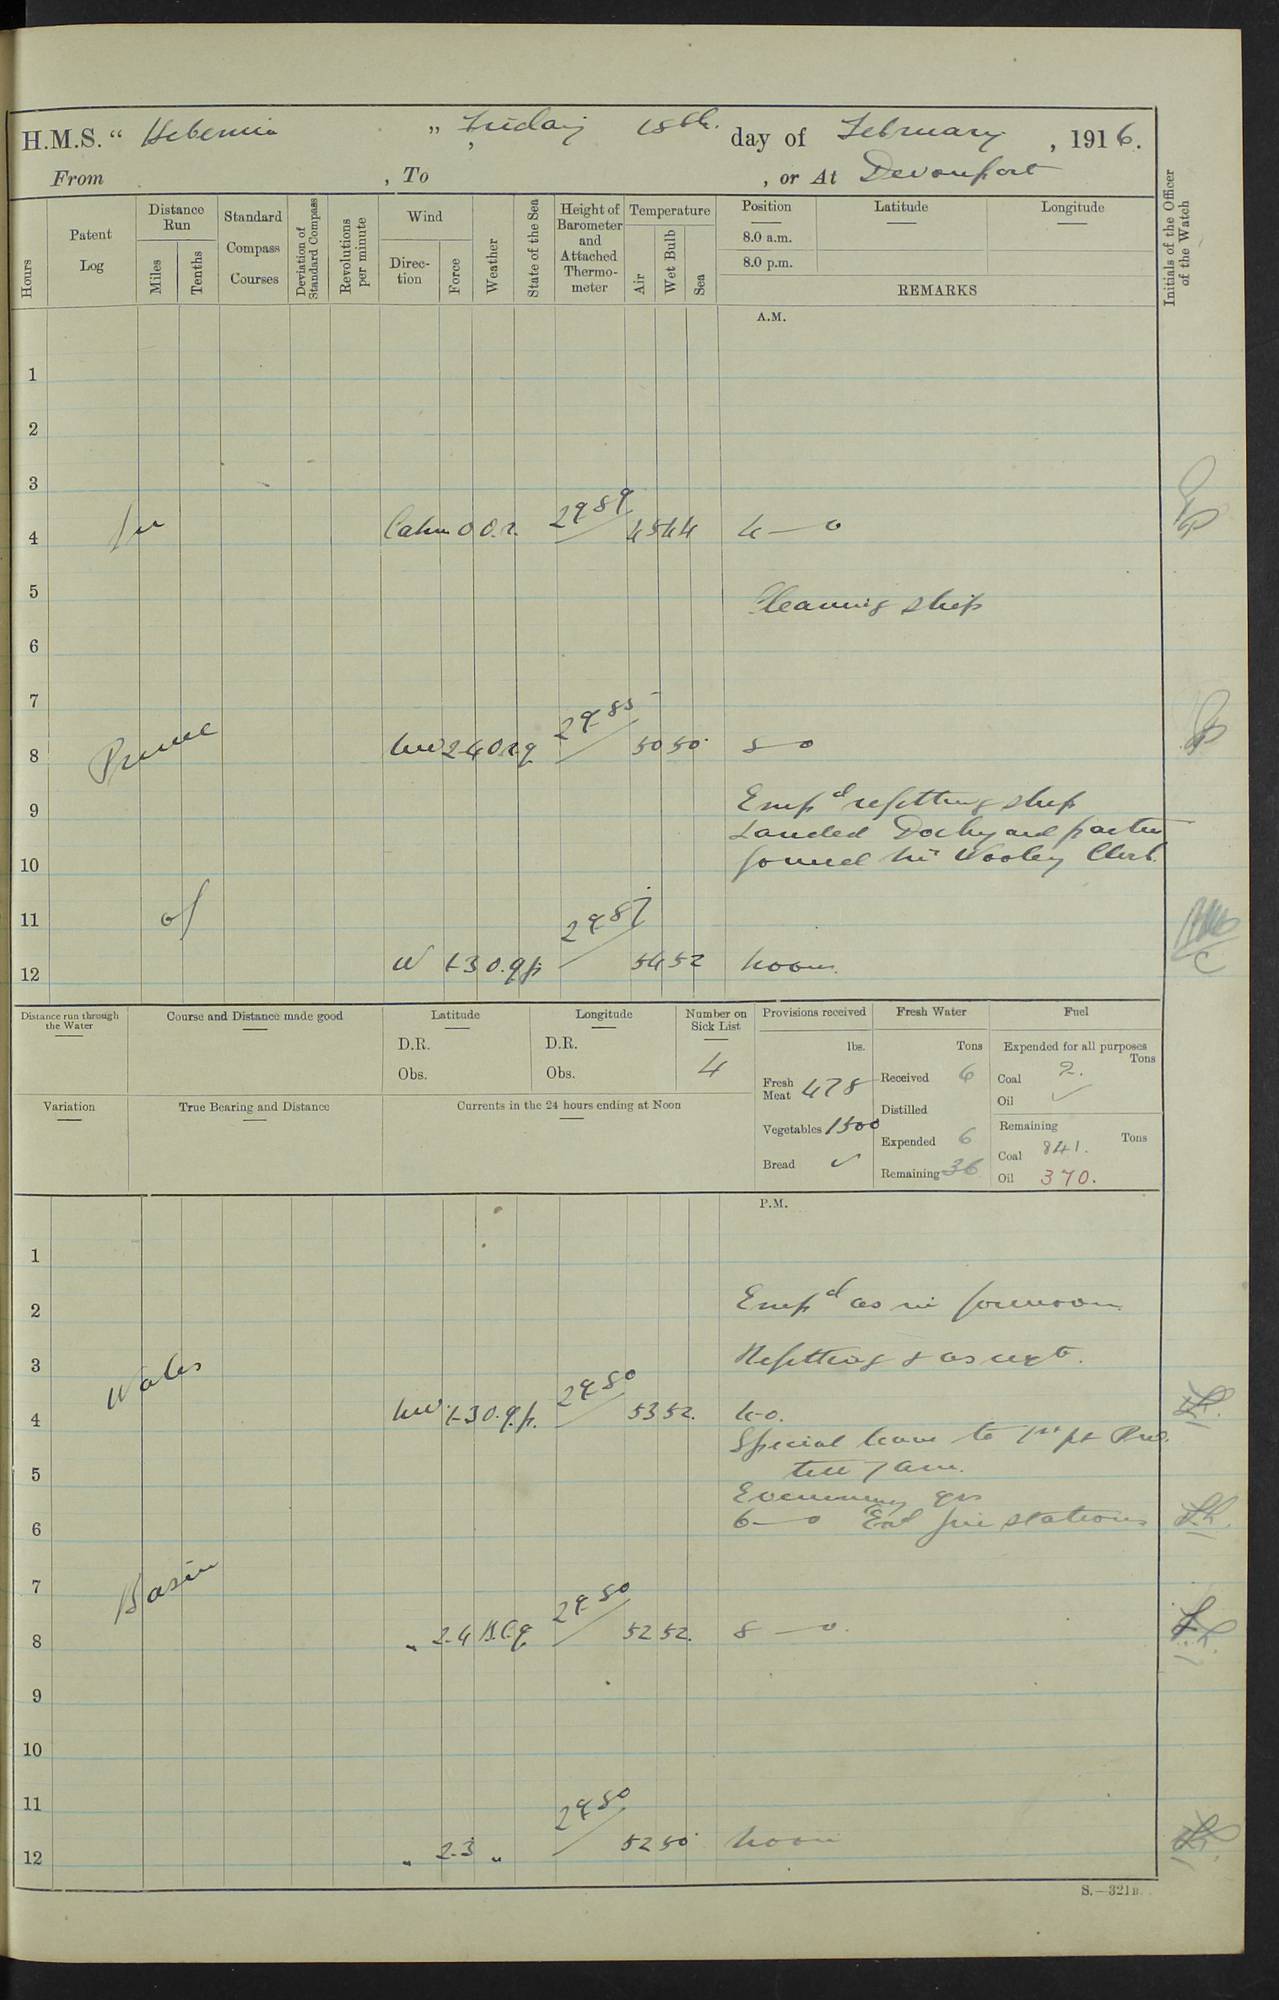 H.M.S. " Hibernia " , Friday 18th. day of February , 1916.
From , To , or At Devonport
Hours
Patent Log
Distance Run
Miles
Tenths
Standard Compass Courses
Deviation of Standard Compass
Revolutions per minute
Wind
Direction
Force
Weather
State of the Sea
Height of Barometer and Attached Thermometer
Temperature
Air
Wet Bulb
Sea
Position
8.0 a.m.
8.0 p.m.
Latitude
Longitude
REMARKS
Initials of the Officer of the Watch
A.M.
1
2
3
4 In Calm 0 O.r. 29.89 45 44 4—0
5 Cleaning ship
6
7
8 Prince NW 2-4 O.r.q 29.85 50 50 8—0
9 Emp^d refitting ship
Landed Dockyard party
10 joined Mr Wooley Clerk
11 of
12 W 1-3 O.q.p 29.87 54 52 Noon
Distance run through the Water
Course and Distance made good
Latitude
D.R.
Obs.
Longitude
D.R.
Obs.
Number on Sick List
4
Provisions received
lbs.
Fresh Meat 478
Vegetables 1500
Bread ✓
Fresh Water
Tons
Received 6
Distilled
Expended 6
Remaining 36
Fuel
Expended for all purposes
Tons
Coal 2.
Oil ✓
Remaining
Tons
Coal 841.
Oil 370.
Variation
True Bearing and Distance
Currents in the 24 hours ending at Noon
P.M.
1
2 Emp^d as in forenoon
3 Wales Refitting & as reqt.
4 NW 1-3 O.q.p. 29.80 53 52. 4-0.
Special leave to 1st pt
5 till 7 am.
Evening qrs
6 6—0 Ex^d fire stations
7 Basin
8 " 2-4 B.C.q 29.80 52 52. 8—0.
9
10
11
12 " 2-3 " 29.80 52 50 Noon
S.—321B.